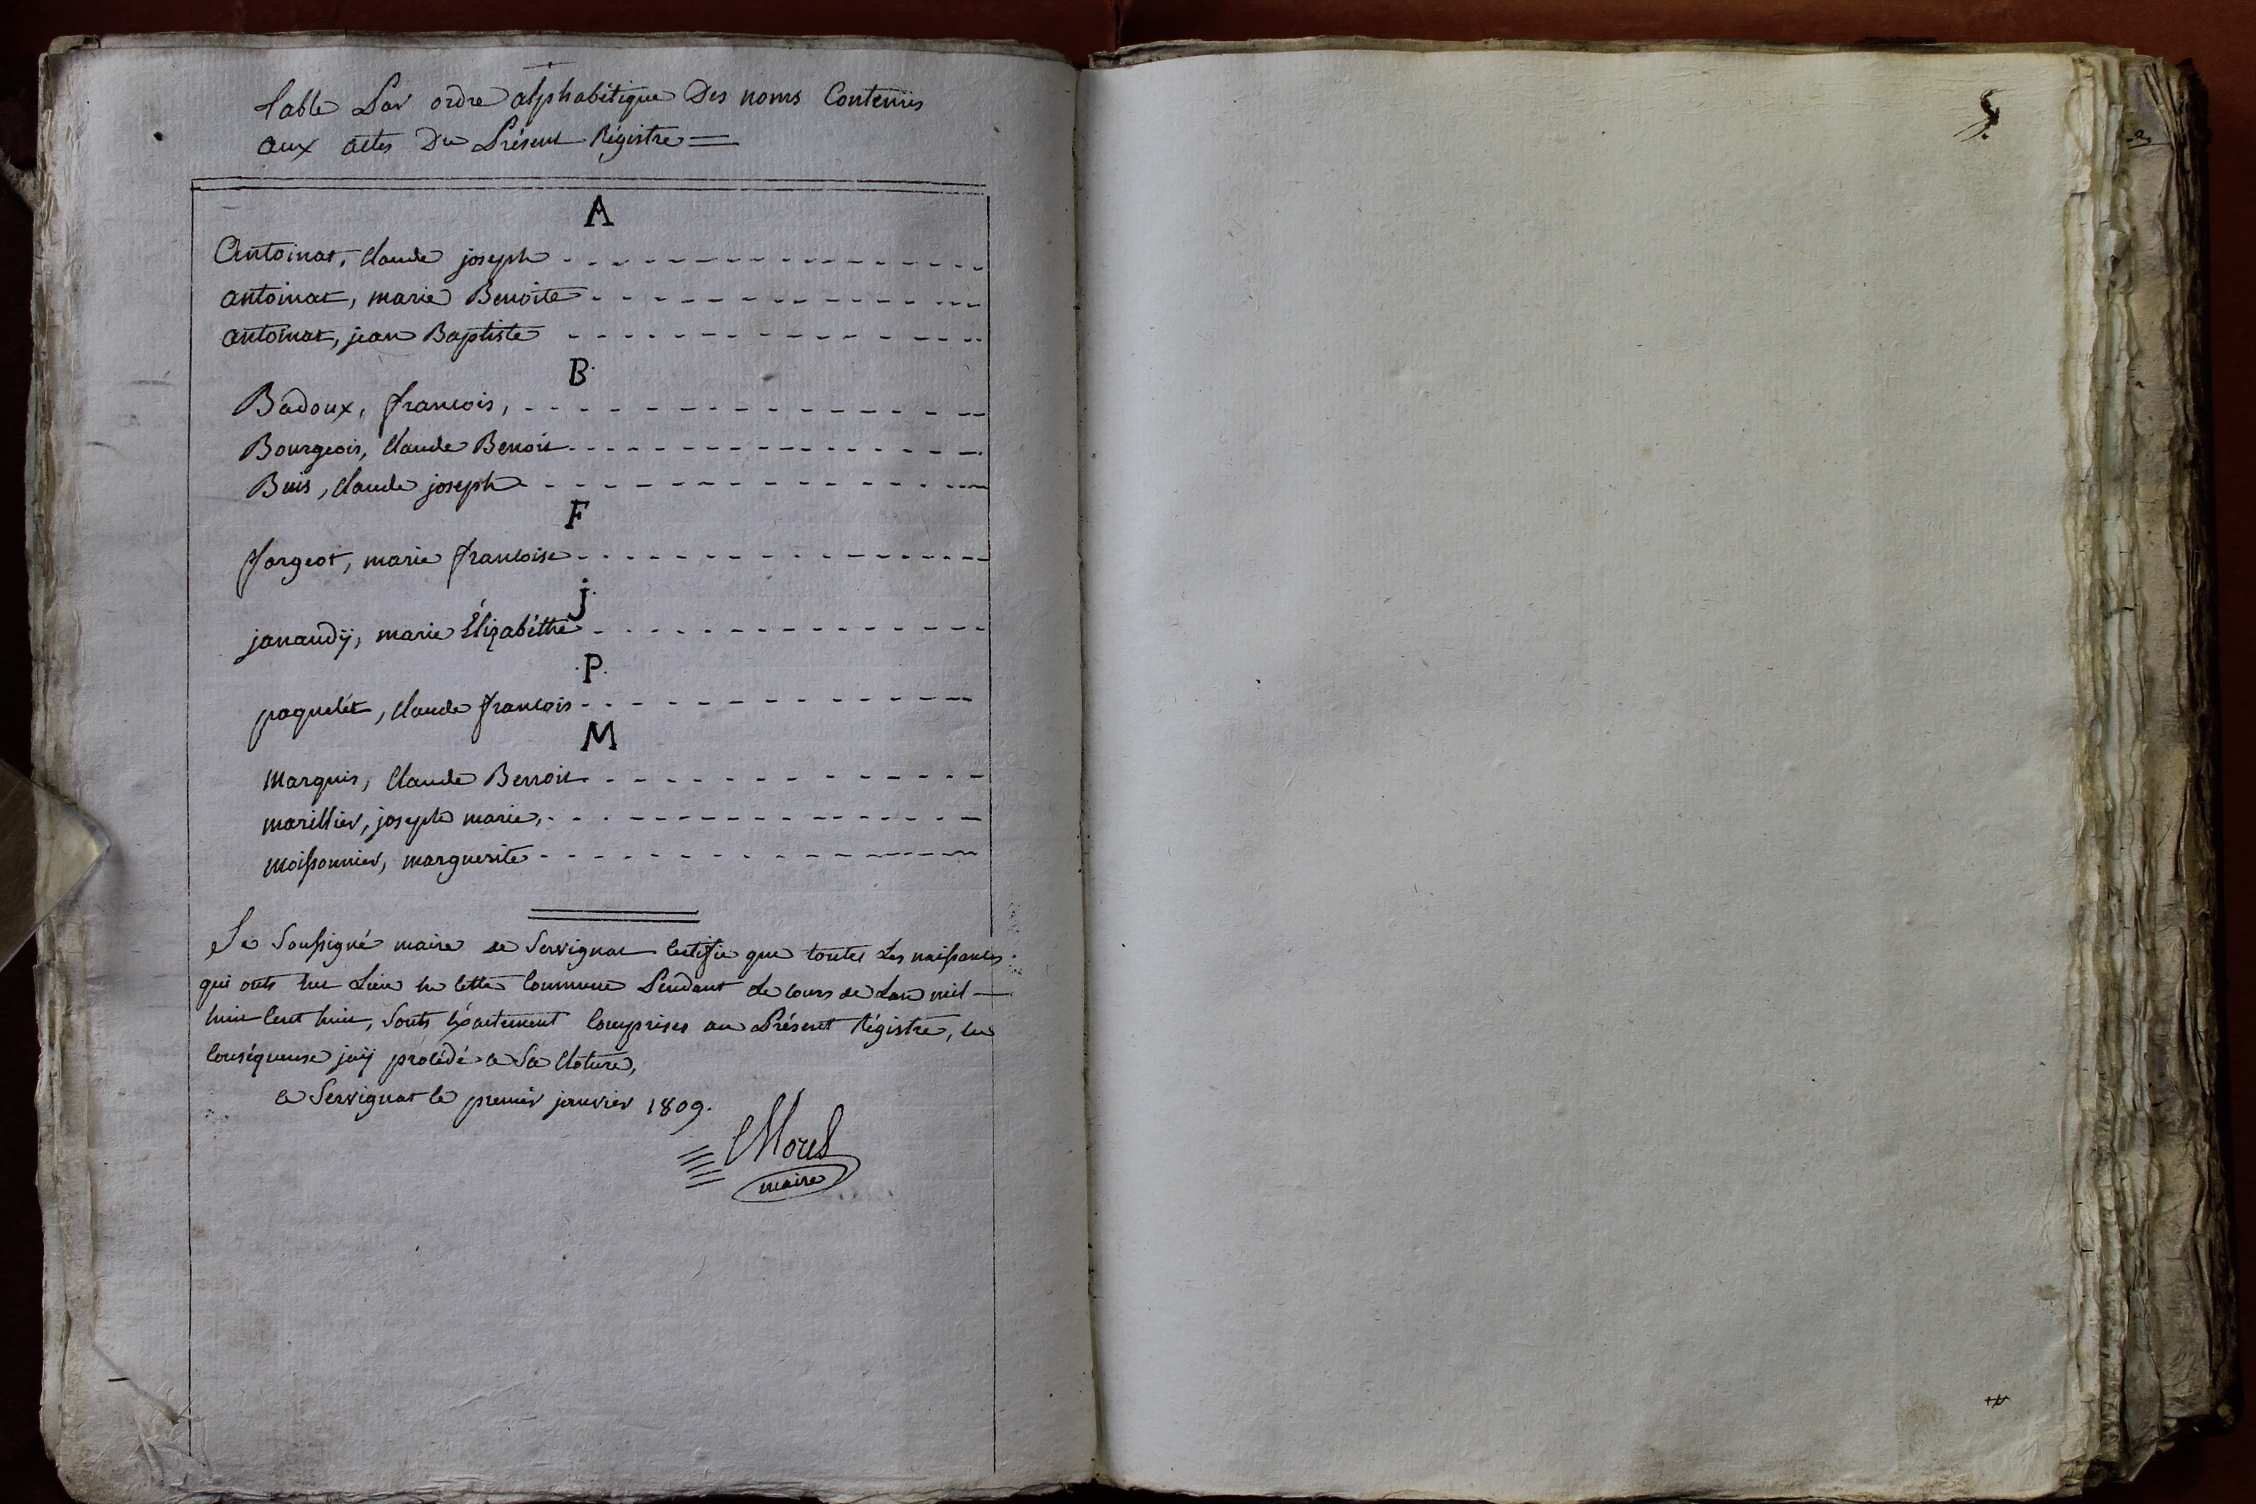 table Par ordre alphabétique Des noms Contenus
aux actes Du Présent Régistre =
A
Antoinat, Claude joseph
antoinat, marie Benoite
antoinat, jean Baptiste
B.
Badoux, françois,
Bourgeois, Claude Benoit
Buis, Claude joseph
F
forgeot, marie françoise
j.
janaudÿ, marie Élizabéthe
.P.
paquelét, Claude françois
M
Marquis, Claude Benoit
marillier, joseph marie,
moissonnier, marguerite
Je Soussigné maire de Servignat Certifie que toutes Les naissances
qui onts lieu Cette Commune Pendant Le Cours de Lan mil
huit Cent huit, Sonts Exactement Comprises au Présent Régistre, En
Conséquense jaÿ procédé a Sa Cloture,
a Servignat le premier janvier 1809.
Morel
maire